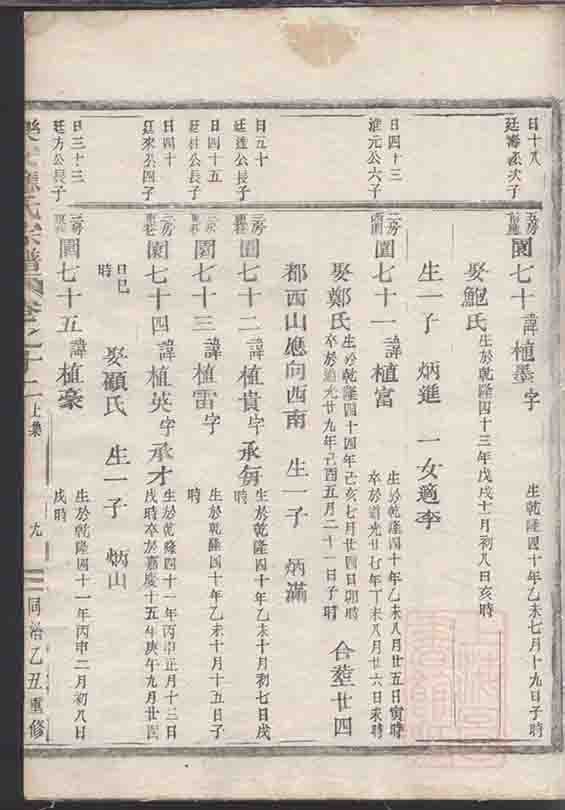 日十八
廷海公次子
五房
園七十 諱植墨 字
生乾隆四十年乙未七月十九日子時
娶鮑氏 生於乾隆四十三年戊戌十月初八日亥時
生一子 炳進 一女適李
日四十三
淮元公六子
二房
園七十一 諱植富
生於乾隆四十年乙未八月廿五日寅時
卒於道光廿七年丁未八月廿六日未時
娶鄭氏 生於乾隆四十四年己亥七月廿四日卯時
卒於道光廿九年己酉五月二十一日子時
合塟廿四
都西山應向西南 生一子 炳滿
日五十
廷達公長子
三房
園七十二 諱植貴 字承每
生於乾隆四十年乙未十月初七日戌
時
日四十五
廷柱公長子
三房
園七十三 諱植雷 字
生於乾隆四十年乙未十月十五日子
時
日四十
廷來公四子
三房
園七十四 諱植英 字承才
生於乾隆四十一年丙申正月十三日
戌時卒於嘉慶十五年庚午九月廿四
日巳
時
娶顧氏 生一子 炳山
日三十三
廷方公長子
三房
園七十五 諱植豪
生於乾隆四十一年丙申二月初八日
戌時
應氏宗譜 卷之十二 上集 九 同治乙丑重修